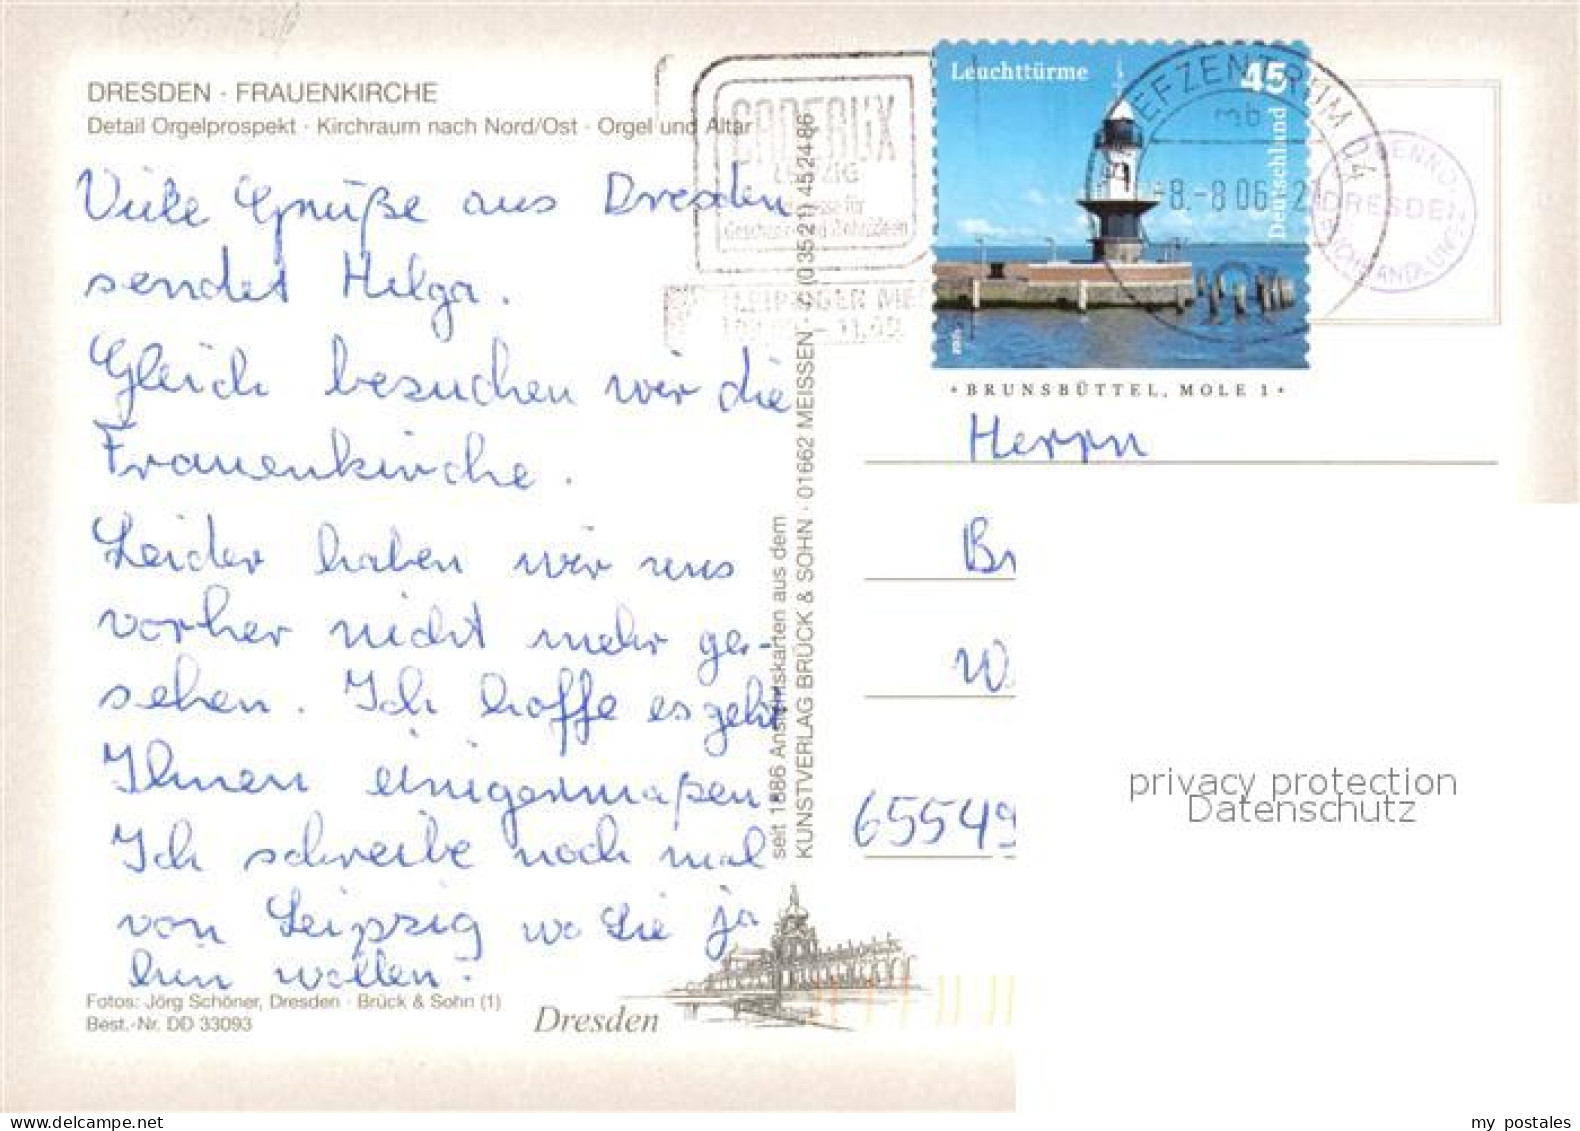 DRESDEN · FRAUENKIRCHE
Detail Orgelprospekt · Kirchraum nach Nord/Ost · Orgel und Altar
Viele Grüße aus Dresden
sendet Helga.
Gleich besuchen wir die
Frauenkirche.
Leider haben wir uns
vorher nicht mehr ge-
sehen. Ich hoffe es geht
Ihnen einigermaßen.
Ich schreibe noch mal
von Leipzig wo Sie ja
hin wollen.
Fotos: Jörg Schöner, Dresden · Brück & Sohn (1)
Best.-Nr. DD 33093
Dresden
seit 1886 Ansichtskarten aus dem
KUNSTVERLAG BRÜCK & SOHN · 01662 MEISSEN · (03521) 452486
CADEAUX
LEIPZIG
LEIPZIGER ME
Leuchttürme
45
Deutschland
2005
* BRUNSBÜTTEL, MOLE 1 *
BRIEFZENTRUM 04
mb
-8.-8.06-21
BENNO-
DRESDEN
BUCHHANDLUNG
Herrn
Br
W
65549
privacy protection
Datenschutz
my postales